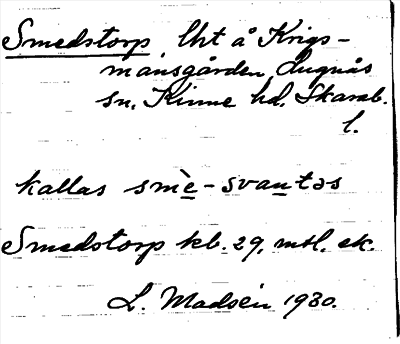 Smedstorp, lht å Krigs-
månsgården Lugnås
sn, Kinne hd, Skarab.
l.
kallas smè-svantəs
Smedstorp kb. 29, mtl. ek.
L. Madsén 1930.